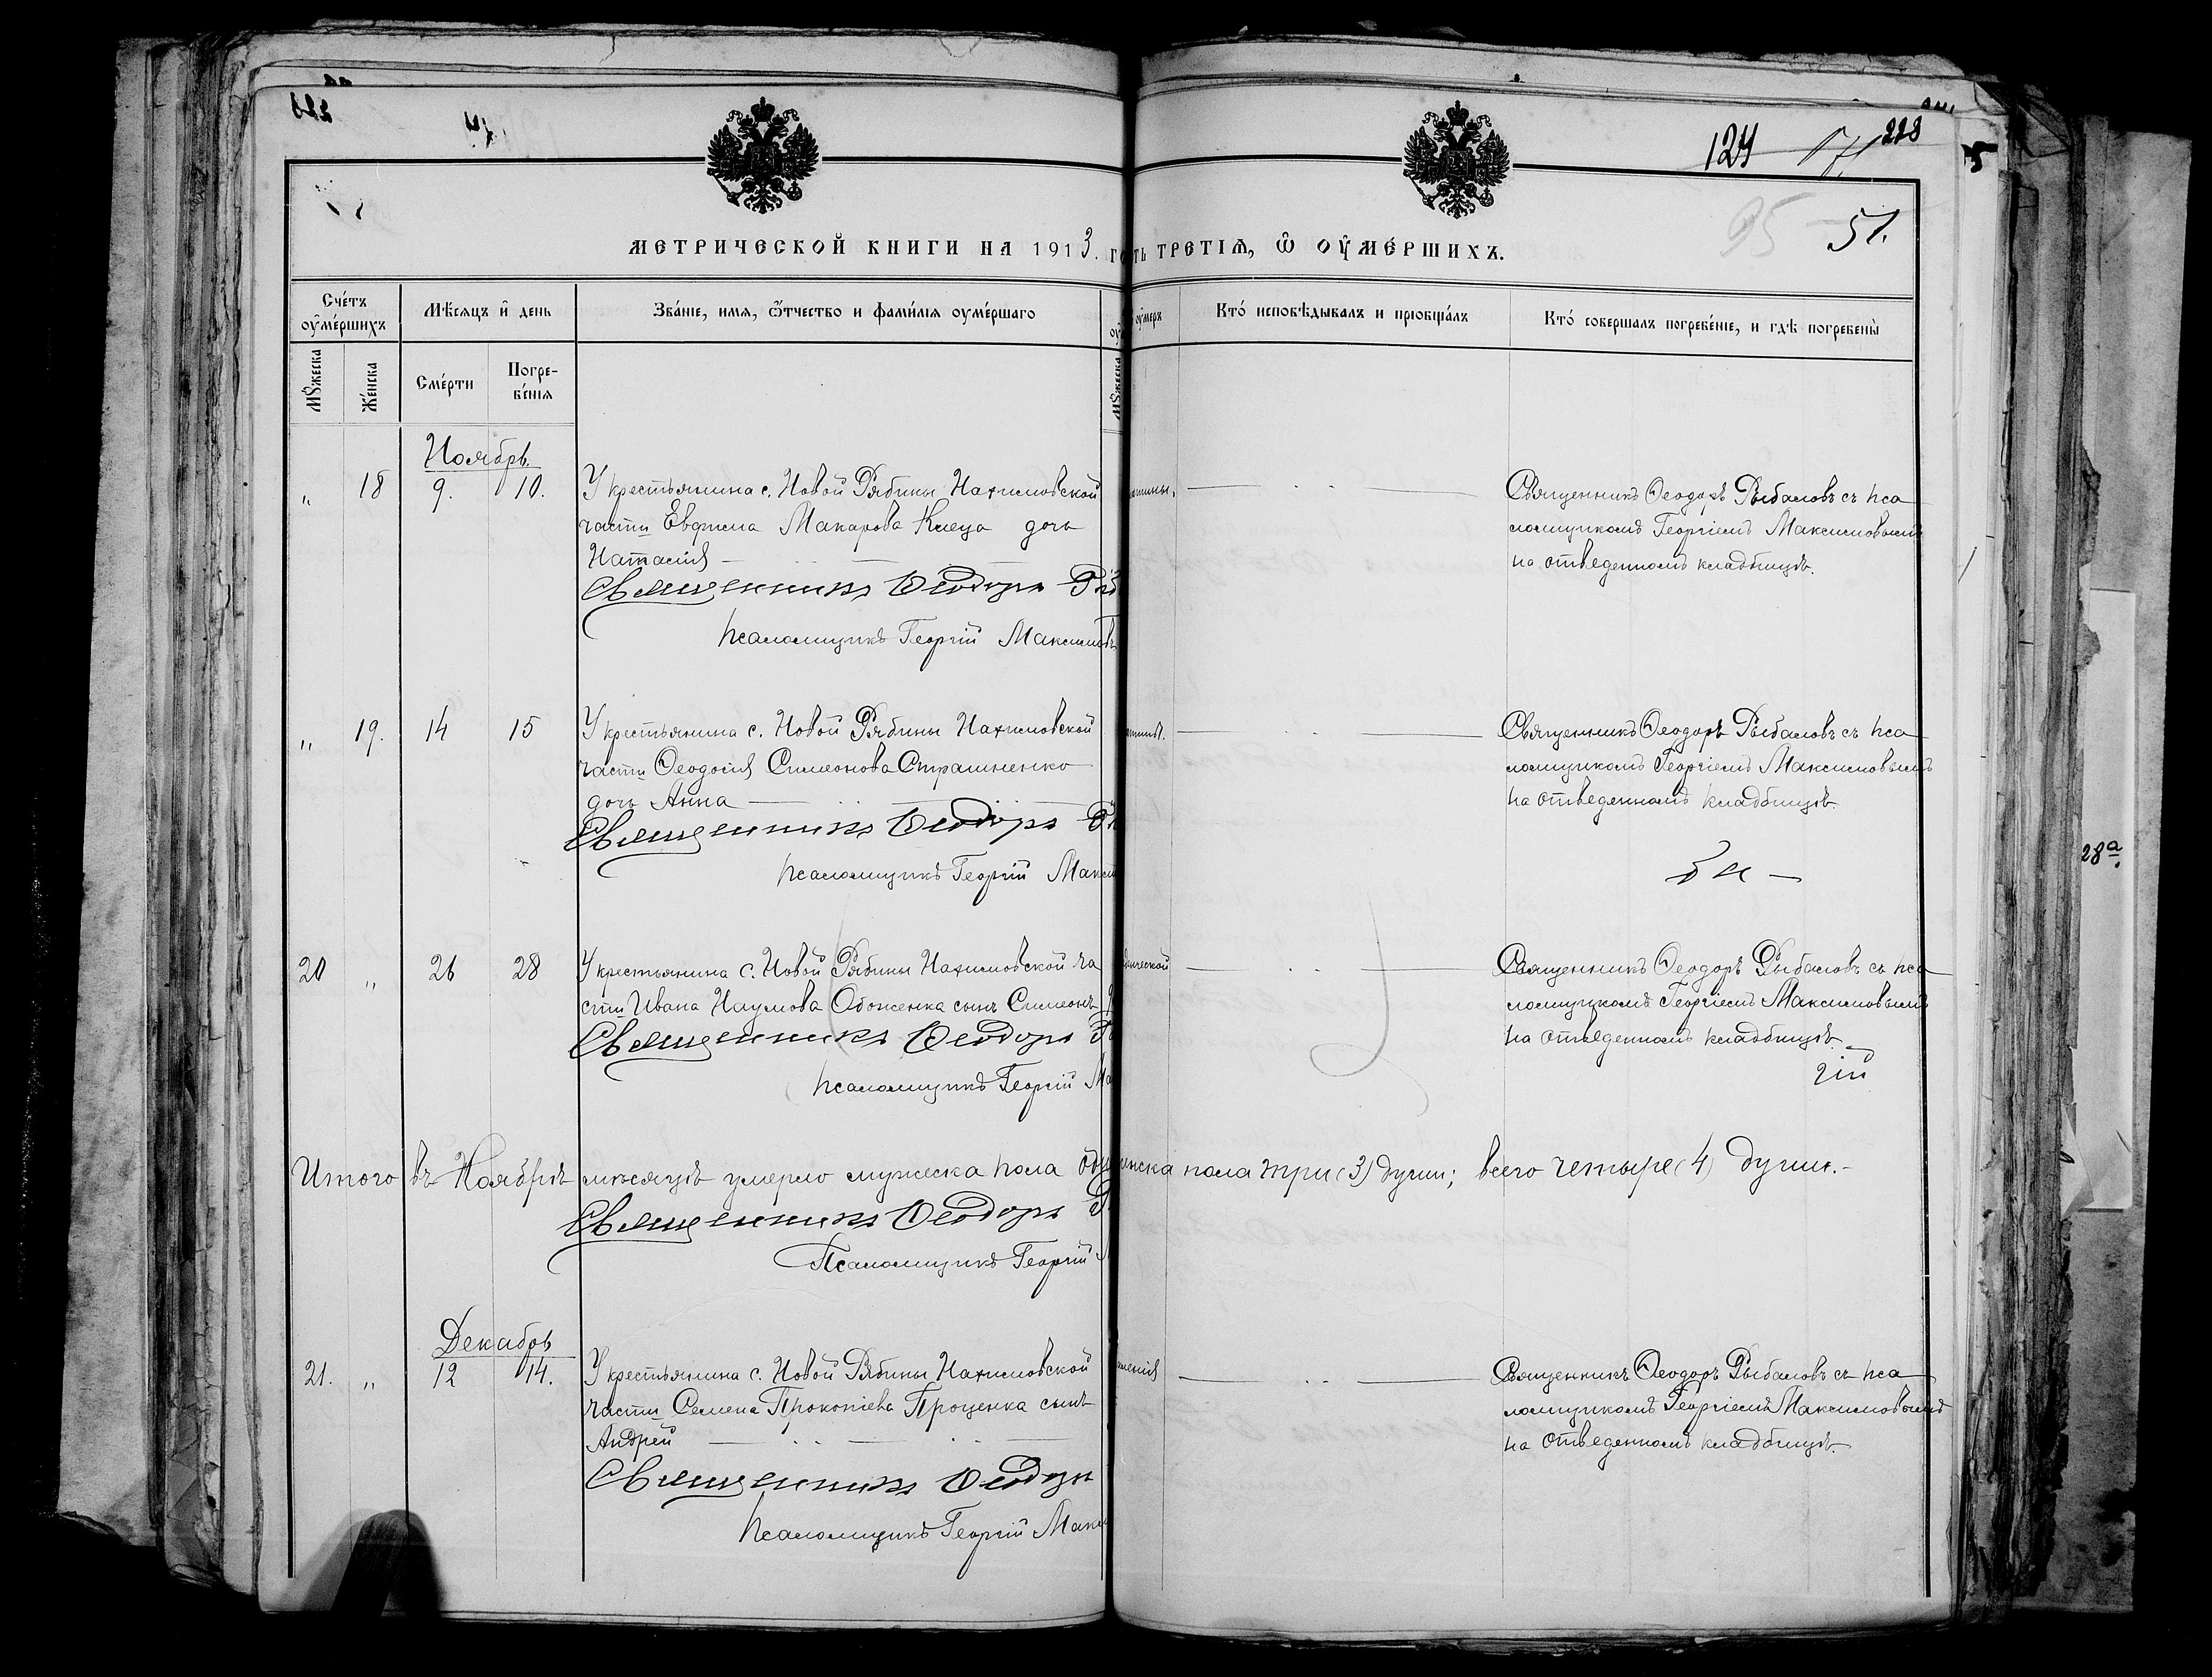 124 171 228
51.
МЕТРИЧЕСКОЙ КНИГИ НА 1913. го
ть ТРЕТІѦ, Ѿ ОУМЕ́РШИХЪ.
Сче́тъ оуме́ршихъ
Мѣ́сѧцъ и҆ день
Зва́нїе, имѧ, ѻ҆́тчество и фами́лїѧ оуме́ршаго
оумеръ
Кто́ исповѣ́дывалъ и прїобща́лъ
Кто́ совершалъ погребе́нїе, и гдѣ погребены̀
Мꙋ́жеска
Же́нска
Сме́рти
Погребе́нїѧ
Мꙋ́жеска
Ноябрь
„ 18 9. 10. У крестьянина с. Новой Рябины Нахимовской
части Евфима Макарова Клеца дочь
Наталія
Священникъ Ѳеодоръ Рыб
Псаломщикъ Георгій Максимовъ
Священникъ Ѳеодоръ Рыбаловъ съ пса
ломщикомъ Георгіемъ Максимовымъ
на отведенномъ кладбищѣ.
„ 19. 14 15 У крестьянина с. Новой Рябины Нахимовской
части Ѳеодосія Симеонова Страшненко
дочь Анна
Священникъ Ѳеодоръ Ры
Псаломщикъ Георгій Макси
Священникъ Ѳеодоръ Рыбаловъ съ пса
ломщикомъ Георгіемъ Максимовымъ
на отведенномъ кладбищѣ.
20 „ 26 28 У крестьянина с. Новой Рябины Нахимовской ча
сти Ивана Наумова Обоженка сынъ Симеонъ
Священникъ Ѳеодоръ Р
Псаломщикъ Георгій Ма
Священникъ Ѳеодоръ Рыбаловъ съ пса
ломщикомъ Георгіемъ Максимовымъ
на отведенномъ кладбищѣ.
гій
Итого въ Ноябрѣ мѣсяцѣ умерло мужеска пола од
енска пола три (3) души; всего четыре (4) души.-
Священникъ Ѳеодоръ Р
Псаломщикъ Георгій М
Декабрь
21. „ 12 14. У крестьянина с. Новой Рябины Нахимовской
части Семена Прокопіева Проценка сынъ
Андрей
Священникъ Ѳеодоръ
Псаломщикъ Георгій Макс
Священникъ Ѳеодоръ Рыбаловъ съ пса
ломщикомъ Георгіемъ Максимовымъ
на отведенномъ кладбищѣ.
28а.